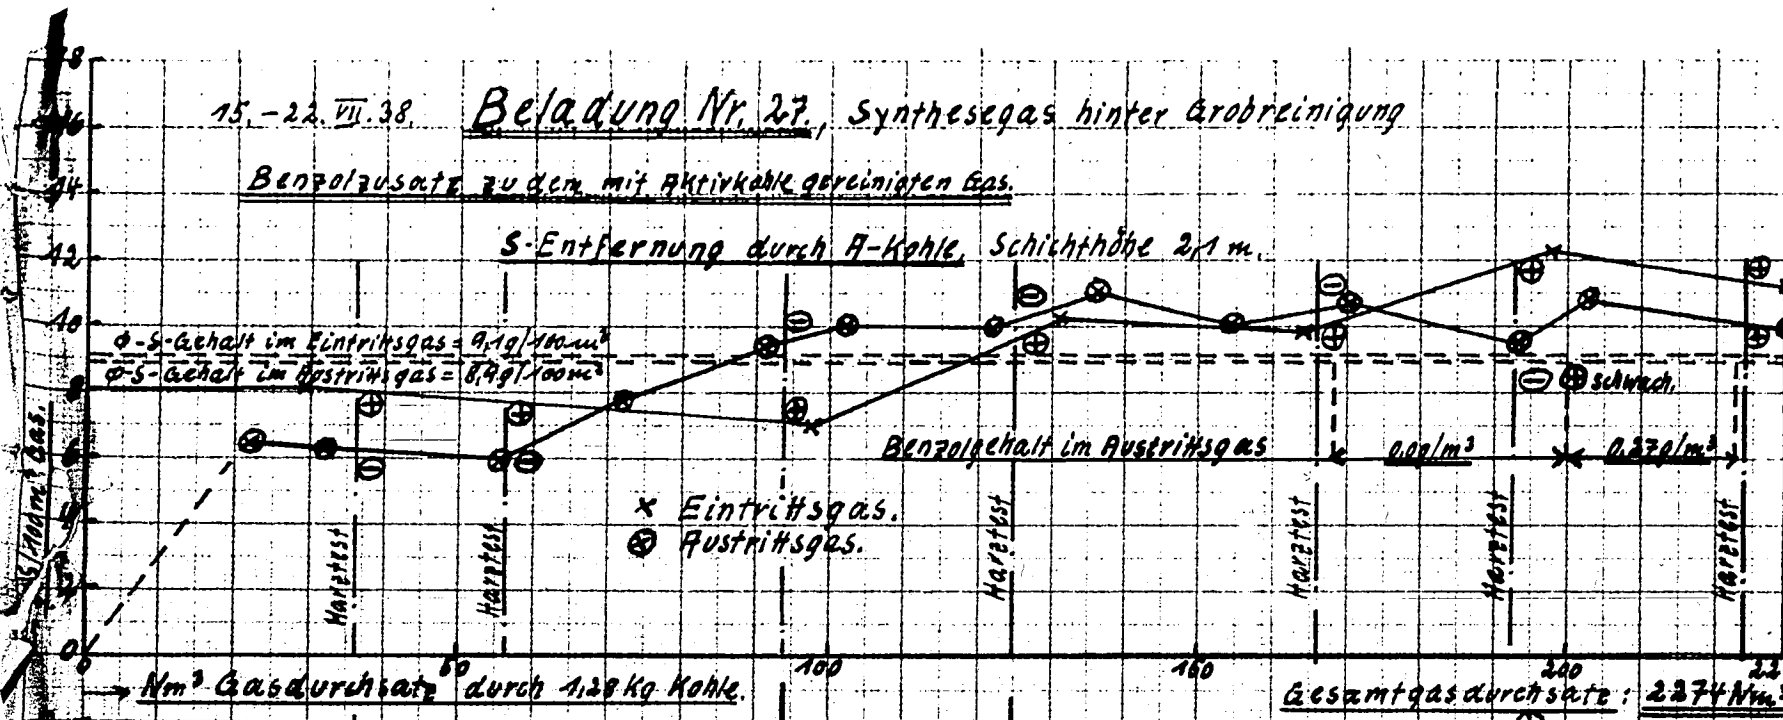 18
15.-22.VII.38. Beladung Nr. 27., Synthesegas hinter Grobreinigung
16
Benzolzusatz zu dem mit Aktivkohle gereinigten Gas.
14
S-Entfernung durch A-Kohle, Schichthöhe 2,1 m.
12
10
φ-S-Gehalt im Eintrittsgas = 9,1g/100m³
φ-S-Gehalt im Austrittsgas = 8,9g/100m³
8
schwach.
Benzolgehalt im Austrittsgas 0,0g/m³ 0,27g/m³
6
× Eintrittsgas.
⊗ Austrittsgas.
4
2
Harztest Harztest Harztest Harztest Harztest Harztest
0
0 50 100 150 200 22
→ Nm³ Gasdurchsatz durch 1,28 Kg Kohle.
Gesamtgasdurchsatz: 227,4 Nm³